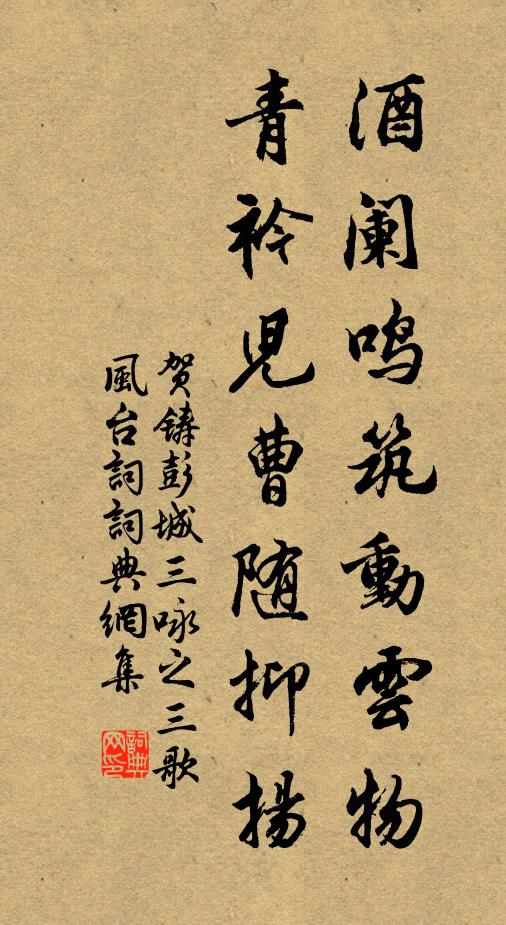 酒阑鸣筑動雲物
青衿児曹随抑揚
贺鑄彭城三咏之三歌
風台詞詞典網集
詞典网印